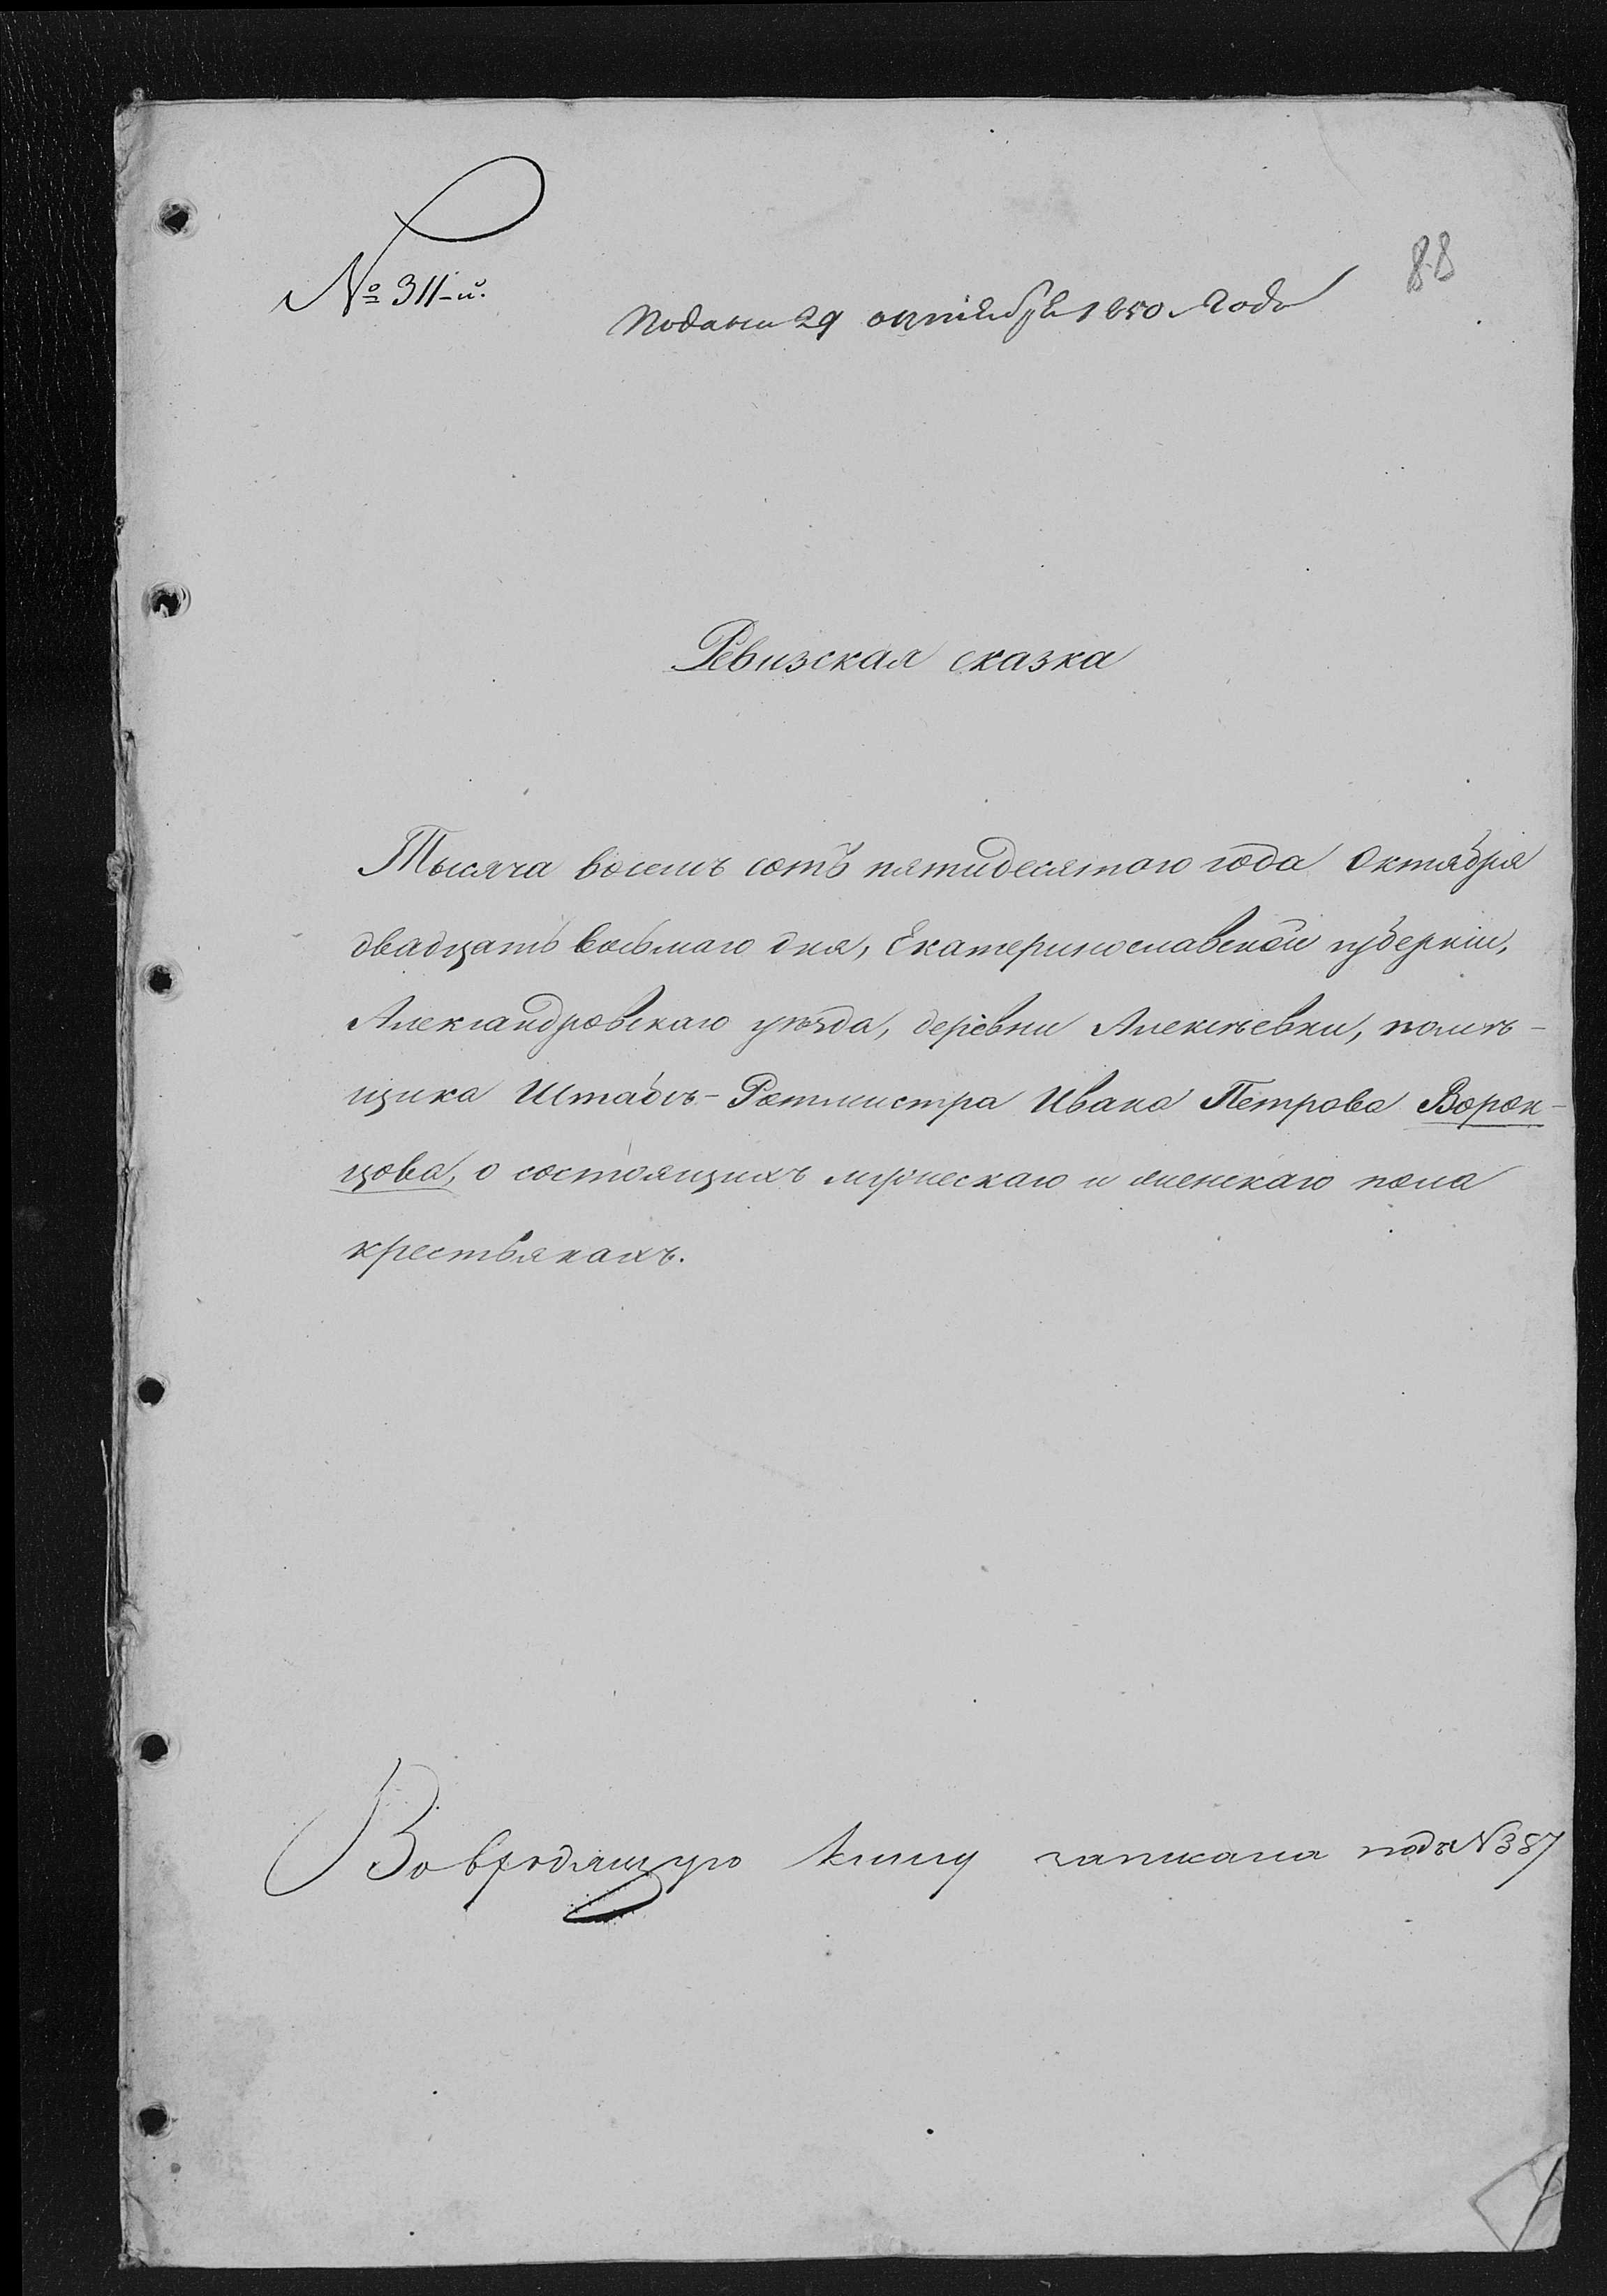 № 311-й.
88
Подана 29 октября 1850 года
Ревизская сказка
Тысяча восемь сотъ пятидесятаго года Октября
двадцать восьмаго дня, Екатеринославской губерніи,
Александровскаго уѣзда, деревни Алексѣевки, помѣ-
щика Штабъ-Ротмистра Ивана Петрова Ворон-
цова, о состоящихъ мужескаго и женскаго пола
крестьянахъ.
Во входящую книгу записана подъ № 387